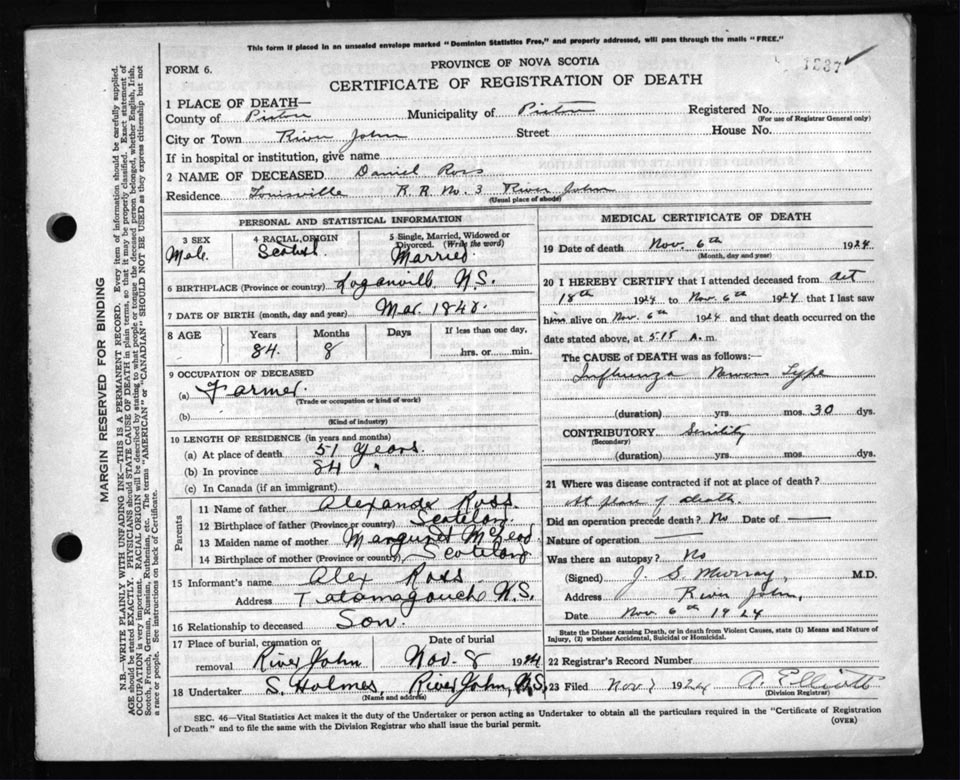 This form if placed in an unsealed envelope marked "Dominion Statistics Free," and properly addressed, will pass through the mails "FREE."
1337
PROVINCE OF NOVA SCOTIA
FORM 6.
CERTIFICATE OF REGISTRATION OF DEATH
1 PLACE OF DEATH—
County of Pictou Municipality of Pictou Registered No.
(For use of Registrar General only)
City or Town River John Street House No.
If in hospital or institution, give name
2 NAME OF DECEASED Daniel Ross
Residence Louisville R.R. No. 3 River John
(Usual place of abode)
PERSONAL AND STATISTICAL INFORMATION
3 SEX 4 RACIAL ORIGIN 5 Single, Married, Widowed or Divorced. (Write the word)
Male Scotch Married
6 BIRTHPLACE (Province or country) Loganville N.S.
7 DATE OF BIRTH (month, day and year) Mar. 1840.
8 AGE Years Months Days If less than one day,
84. 8 hrs. or min.
9 OCCUPATION OF DECEASED
(a) Farmer
(Trade or occupation or kind of work)
(b)
(Kind of industry)
10 LENGTH OF RESIDENCE (in years and months)
(a) At place of death 51 Years.
(b) In province 84 "
(c) In Canada (if an immigrant)
Parents
11 Name of father Alexander Ross
12 Birthplace of father (Province or country)
13 Maiden name of mother Margaret McLeod
14 Birthplace of mother (Province or country)
15 Informant's name Alex Ross
Address Tatamagouche N.S.
16 Relationship to deceased Son.
17 Place of burial, cremation or removal River John Date of burial Nov. 8 1924
18 Undertaker S. Holmes, River John, N.S.
(Name and address)
MEDICAL CERTIFICATE OF DEATH
19 Date of death Nov. 6th 1924
(Month, day and year)
20 I HEREBY CERTIFY that I attended deceased from Oct
18th 1924 to Nov. 6th 1924 that I last saw
him alive on Nov. 6th 1924 and that death occurred on the
date stated above, at 5:15 A.m.
The CAUSE of DEATH was as follows:
Influenza Type
(duration) yrs. mos. 30 dys.
CONTRIBUTORY Senility
(Secondary)
(duration) yrs. mos. dys.
21 Where was disease contracted if not at place of death?
At place of death.
Did an operation precede death? No Date of
Nature of operation
Was there an autopsy? No
(Signed) J. S. Murray, M.D.
Address River John,
Date Nov. 6th 1924
State the Disease causing Death, or in death from Violent Causes, state (1) Means and Nature of Injury, (2) whether Accidental, Suicidal or Homicidal.
22 Registrar's Record Number
23 Filed Nov 7 1924 A. Elliott
(Division Registrar)
SEC. 46—Vital Statistics Act makes it the duty of the Undertaker or person acting as Undertaker to obtain all the particulars required in the "Certificate of Registration
of Death" and to file the same with the Division Registrar who shall issue the burial permit.
(OVER)
MARGIN RESERVED FOR BINDING
N.B.—WRITE PLAINLY WITH UNFADING INK—THIS IS A PERMANENT RECORD. Every item of information should be carefully supplied.
AGE should be stated EXACTLY. PHYSICIANS should STATE CAUSE OF DEATH in plain terms, so that it may be properly classified. Exact statement of
OCCUPATION is very important. RACIAL ORIGIN will be described by stating to what people or tongue the deceased person belonged, whether English, Irish,
Scotch, French, German, Russian, Ruthenian, etc. The terms "AMERICAN" or "CANADIAN" SHOULD NOT BE USED as they express citizenship but not
a race or people. See instructions on back of Certificate.